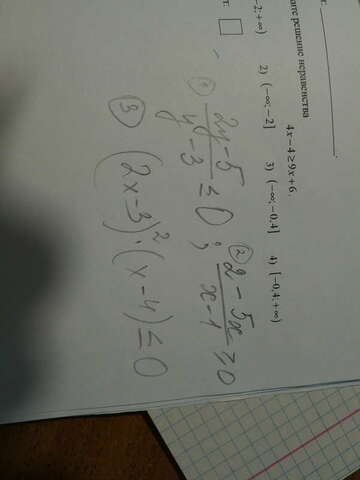 т:
ите решение неравенства
4x − 4 ≥ 9x + 6.
−2; +∞) 2) (−∞; −2] 3) (−∞; −0,4] 4) [−0,4; +∞)
т:
① (2y − 5)/(y − 3) ≤ 0 ; ② (2 − 5x)/(x − 1) ≥ 0
③ (2x − 3)² · (x − 4) ≤ 0